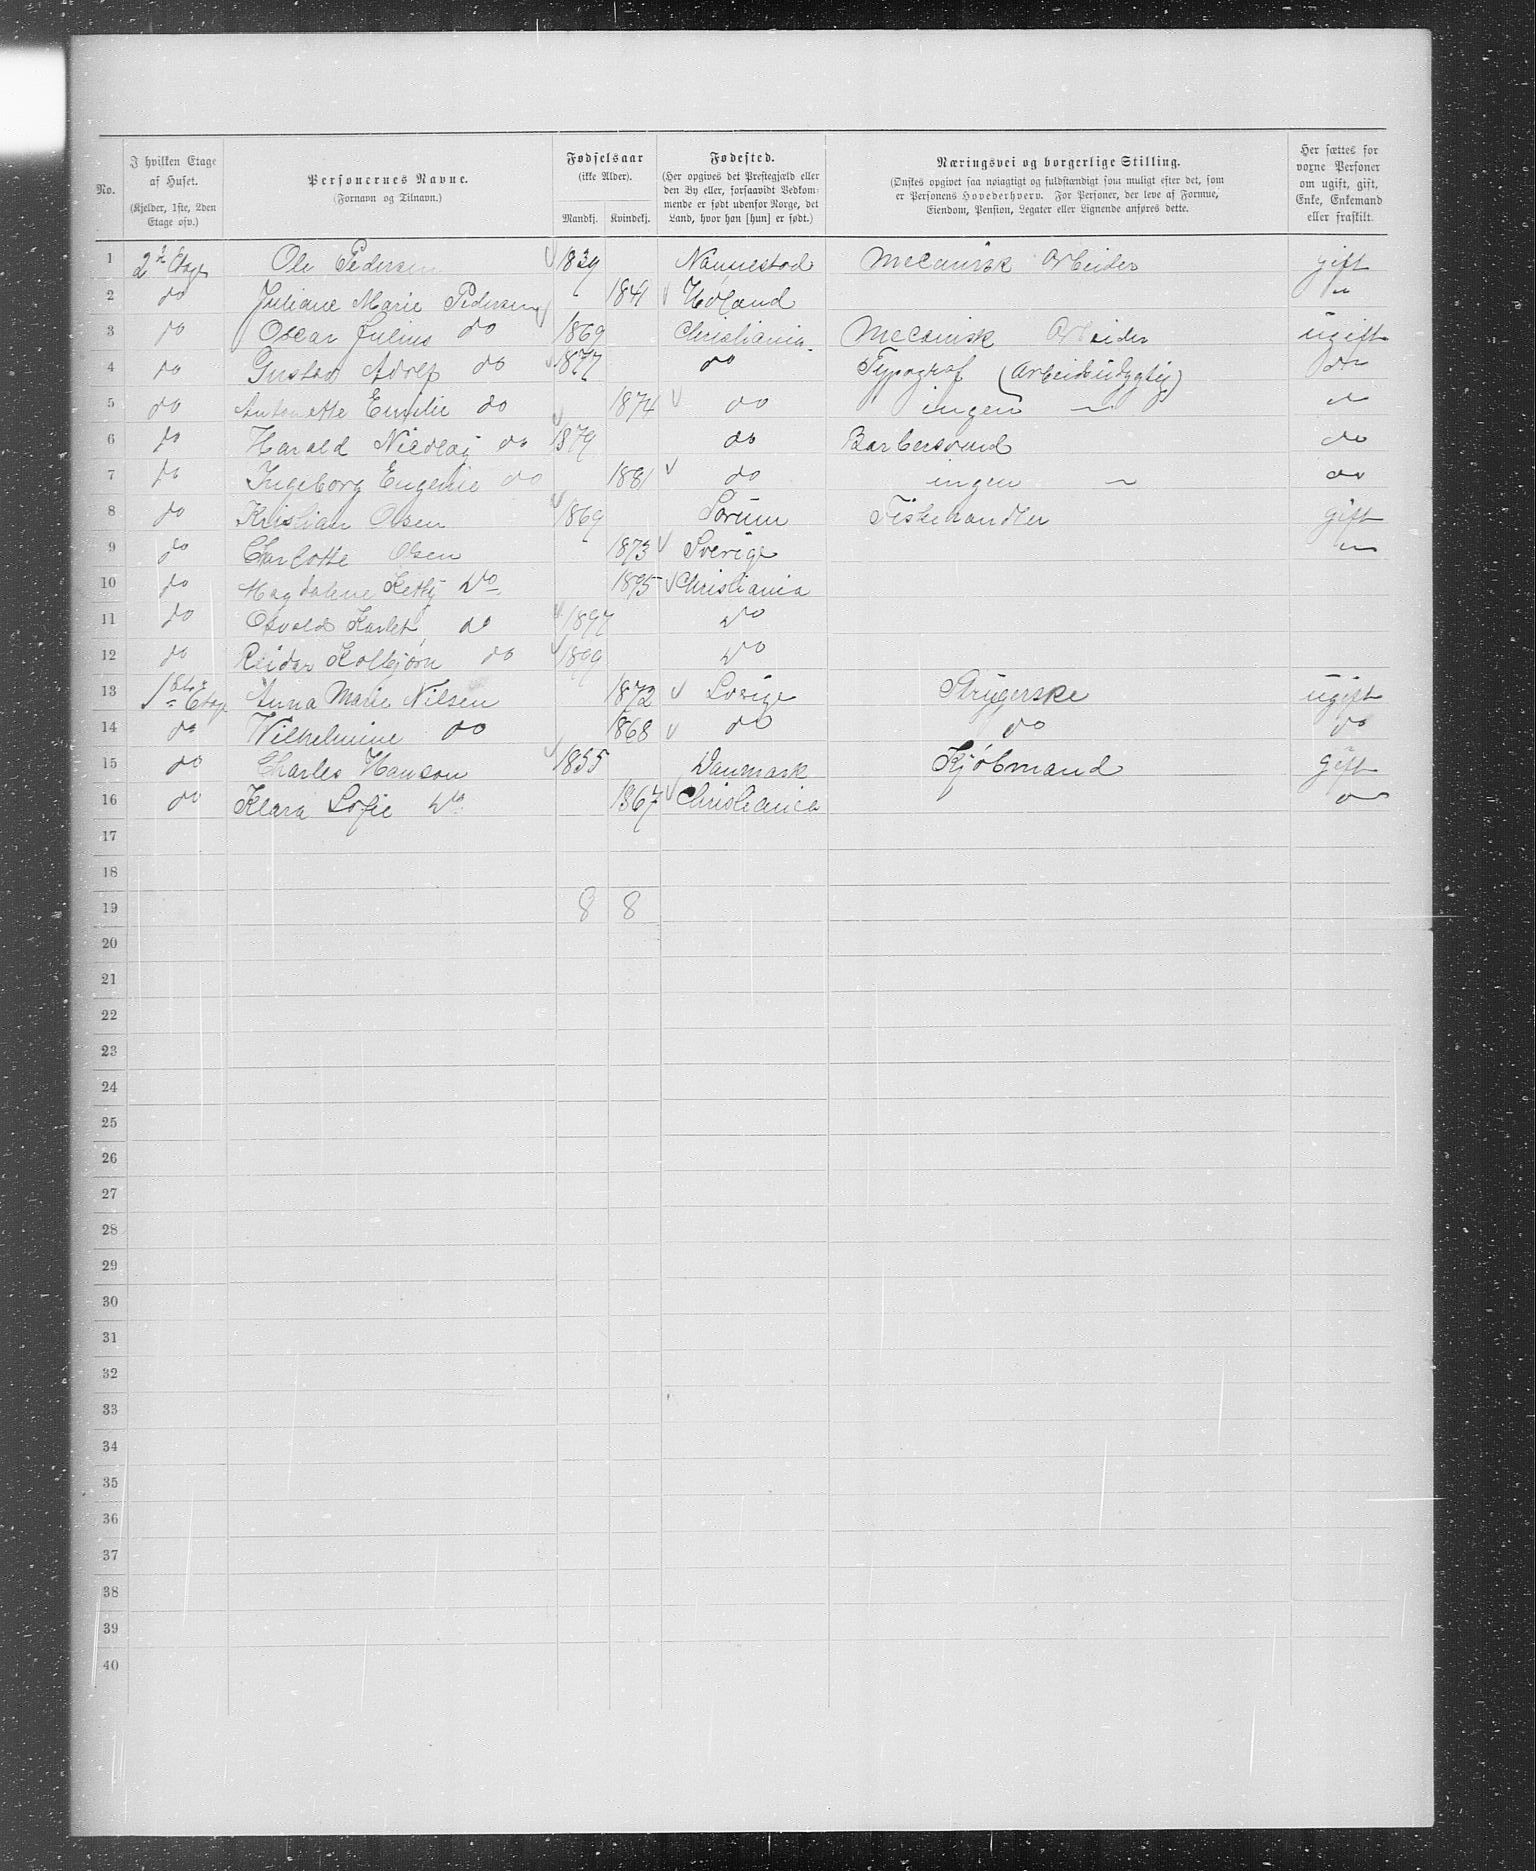 No.
I hvilken Etage af Huset. (Kjelder, 1ste, 2den Etage osv.)
Personernes Navne. (Fornavn og Tilnavn.)
Fødselsaar (ikke Alder). Mandkj. Kvindekj.
Fødested. (Her opgives det Prestegjæld eller den By eller, forsaavidt Vedkommende er født udenfor Norge, det Land, hvor han [hun] er født.)
Næringsvei og borgerlige Stilling. (Ønskes opgivet saa nøiagtigt og fuldstændigt som muligt efter det, som er Personens Hovederhverv. For Personer, der leve af Formue, Eiendom, Pension, Legater eller Lignende anføres dette.
Her sættes for voxne Personer om ugift, gift, Enke, Enkemand eller fraskilt.
1 2 Etage Ole Pedersen 1839 Nannestad Mecanisk Arbeider gift
2 do Juliane Marie Pedersen 1841 Høland "
3 do Oscar Julius do 1869 Christiania Mecanisk Arbeider ugift
4 do Gustav Adolf do 1877 do Typograf (Arbeidsudygtig) do
5 do Antonette Emilie do 1874 do ingen — do
6 do Harald Nicolaj do 1879 do Barbersvend do
7 do Ingeborg Eugenie do 1881 do ingen — do
8 do Kristian Olsen 1869 Sørum Fiskehandler gift
9 do Charlotte Olsen 1873 Sverige "
10 do Magdalene Ketty do 1895 Christiania
11 do Osvald Karlet do 1897 do
12 do Reidar Kolbjørn do 1899 do
13 1ste Etage Anna Marie Nilsen 1872 Sverige Strygerske ugift
14 do Wilhelmine do 1868 do do do
15 do Charles Hanson 1855 Danmark Kjøbmand gift
16 do Klara Sofie do 1867 Christiania do
17
18
19 8 8
20
21
22
23
24
25
26
27
28
29
30
31
32
33
34
35
36
37
38
39
40